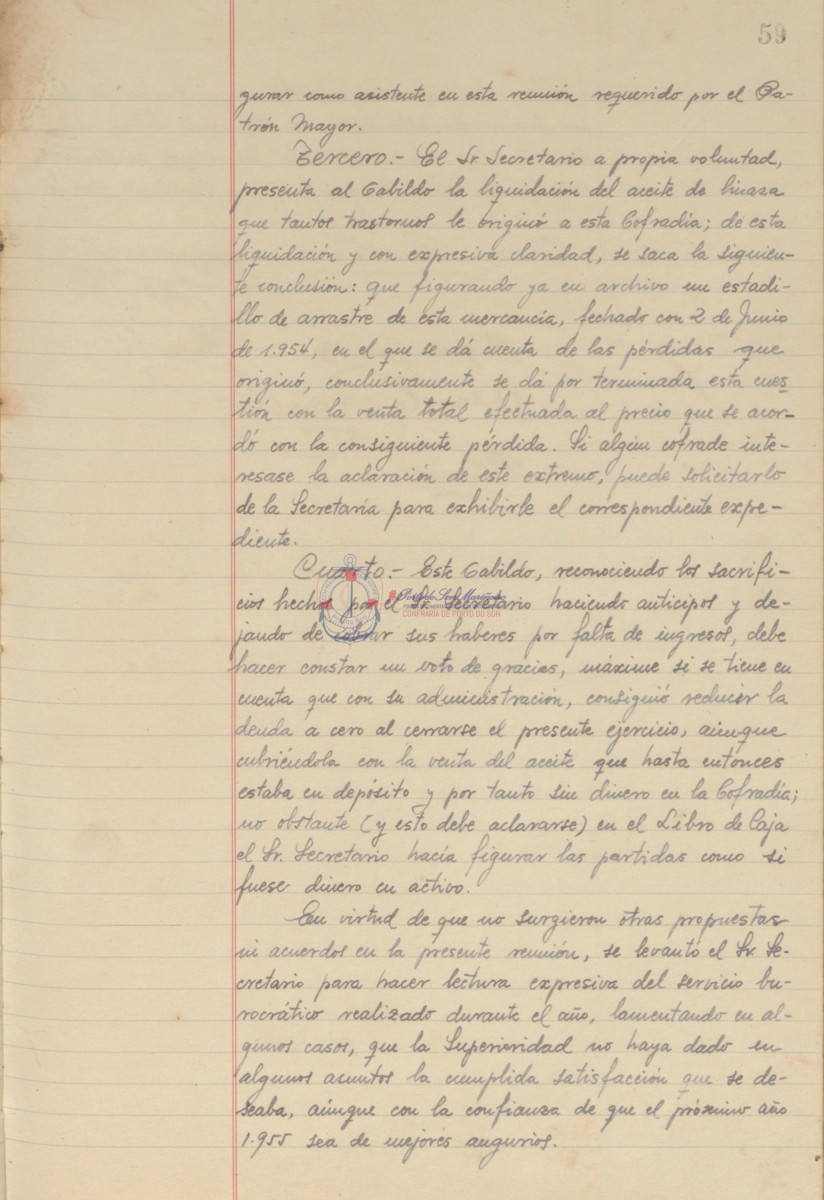 59
gurar como asistente en esta reunión requerido por el Pa-
trón Mayor.
Tercero.- El Sr. Secretario a propia voluntad,
presenta al Cabildo la liquidación del aceite de linaza
que tantos trastornos le originó a esta Cofradía; de esta
liquidación y con expresiva claridad, se saca la siguien-
te conclusión: que figurando ya en archivo un estadi-
llo de arrastre de esta mercancía, fechado con 2 de Junio
de 1.954, en el que se dá cuenta de las pérdidas que
originó, conclusivamente se dá por terminada esta cues-
tión con la venta total efectuada al precio que se acor-
dó con la consiguiente pérdida. Si algún cofrade inte-
resase la aclaración de este extremo, puede solicitarlo
de la Secretaría para exhibirle el correspondiente expe-
diente.
Cuarto.- Este Cabildo, reconociendo los sacrifi-
cios hechos por el Sr. Secretario haciendo anticipos y de-
CONFRARIA DE PORTO DO SON
jando de cobrar sus haberes por falta de ingresos, debe
hacer constar un voto de gracias, máxime si se tiene en
cuenta que con su administración, consiguió reducir la
deuda a cero al cerrarse el presente ejercicio, aúnque
cubriéndola con la venta del aceite que hasta entonces
estaba en depósito y por tanto sin dinero en la Cofradía;
no obstante (y esto debe aclararse) en el Libro de Caja
el Sr. Secretario hacía figurar las partidas como si
fuese dinero en activo.
En virtud de que no surgieron otras propuestas
ni acuerdos en la presente reunión, se levantó el Sr. Se-
cretario para hacer lectura expresiva del servicio bu-
rocrático realizado durante el año, lamentando en al-
gunos casos, que la Superioridad no haya dado en
algunos asuntos la cumplida satisfacción que se de-
seaba, aúnque con la confianza de que el próximo año
1.955 sea de mejores augurios.